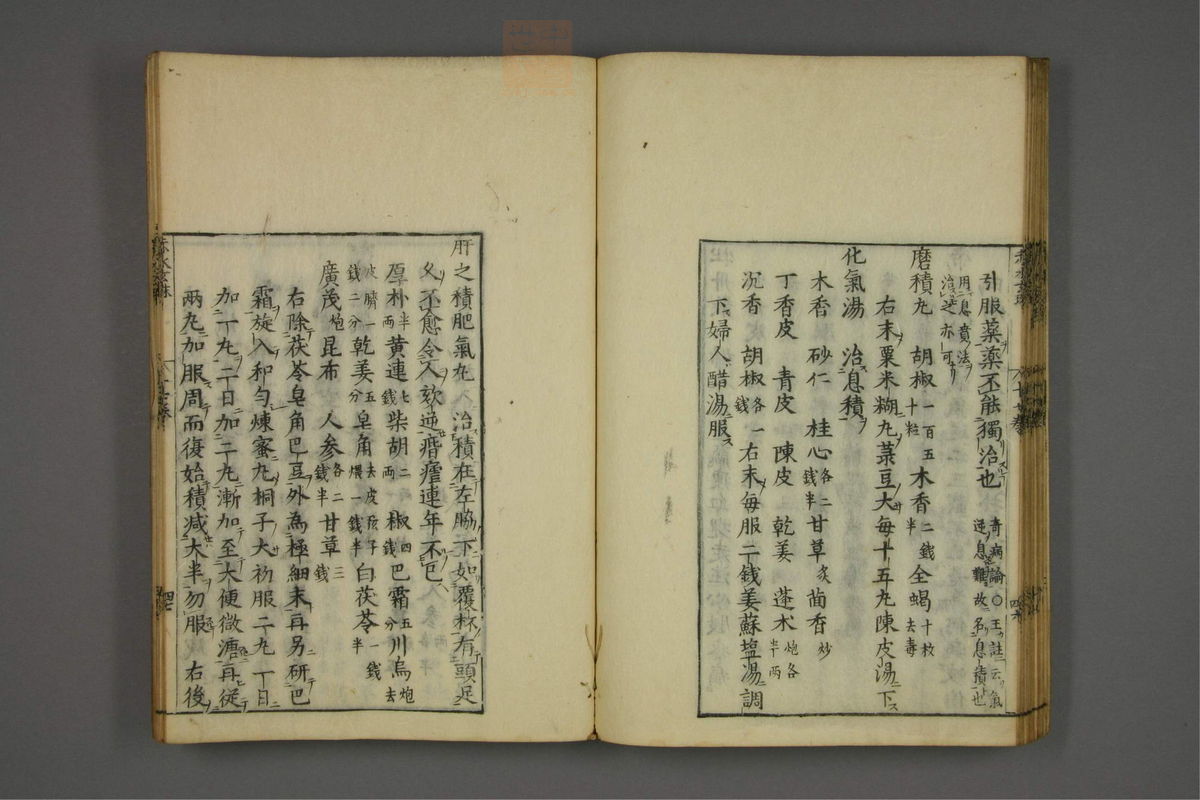 引服藥藥不能獨治也 奇病論○王註云氣
逆息難故名息積也
用息賁法
治之亦可
磨積丸 胡椒一百五十粒 木香二錢半 全蝎十枚去毒
右末粟米糊丸菉豆大每十五丸陳皮湯下
化氣湯 治息積
木香 砂仁 桂心各二錢半 甘草炙 茴香炒
丁香皮 青皮 陳皮 乾姜 蓬朮炮各半兩
沉香 胡椒各一錢 右末每服二錢姜蘇塩湯調
下婦人醋湯服
肝之積肥氣丸 治積在左脇下如覆杯有頭足
久不愈令人欬逆㾬瘧連年不已
厚朴半兩 黄連七錢 柴胡二兩 椒四錢 巴霜五分 川烏炮去
皮臍一錢二分 乾姜五分 皂角去皮孩子煨一錢半 白茯苓一錢半
廣茂炮 昆布 人参各二錢半 甘草三錢
右除茯苓皂角巴豆外為極細末再另研巴
霜旋入和匀煉蜜丸桐子大初服二丸一日
加一丸二日加二丸漸加至大便微溏再從
兩丸加服周而復始積减大半勿服 右後